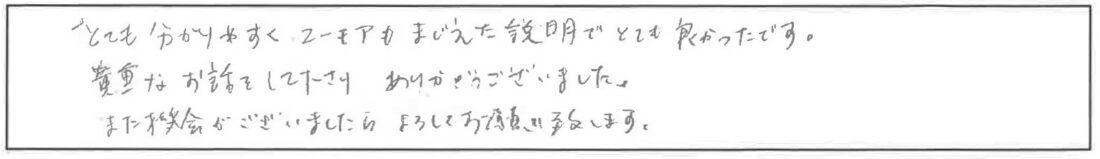 とても分かりやすくユーモアもまじえた説明でとても良かったです。
貴重なお話をして下さりありがとうございました。
また機会がございましたらよろしくお願い致します。